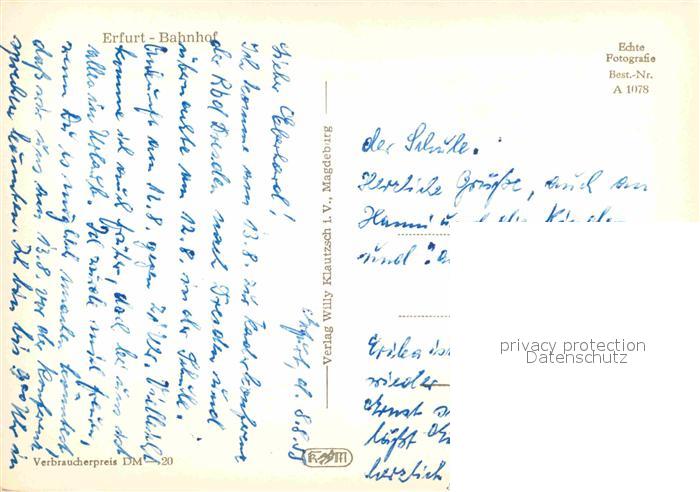 Erfurt - Bahnhof
Echte
Fotografie
Best.-Nr.
A 1078
Erfurt, d. 8.8.
Lieber Eberhard!
Ich komme am 13.8. zur
der Rbd Dresden nach Dresden und
übernachte am 12.8. in der Schule.
Ankunft am 12.8. gegen Uhr. Vielleicht
komme ich auch früher, da
alles in Urlaub. Ich würde mich freuen,
wenn Du es möglich machen könntest,
daß wir uns am 13.8. vor der Konferenz
sprechen könnten. Ich bin bis 9.00 Uhr in
der Schule.
Herzliche Grüße, auch an
Hanni und die Kinder
und
Erika ist
wieder
Ernst
läßt
herzlich
Verlag Willy Klautzsch i. V., Magdeburg
Verbraucherpreis DM —.20
privacy protection
Datenschutz